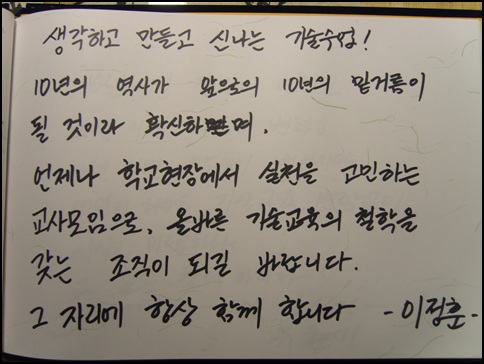 생각하고 만들고 신나는 기술수업!
10년의 역사가 앞으로의 10년의 밑거름이
될 것이라 확신하며,
언제나 학교현장에서 실천을 고민하는
교사모임으로, 올바른 기술교육의 철학을
갖는 조직이 되길 바랍니다.
그 자리에 항상 함께 합니다 - 이정훈 -